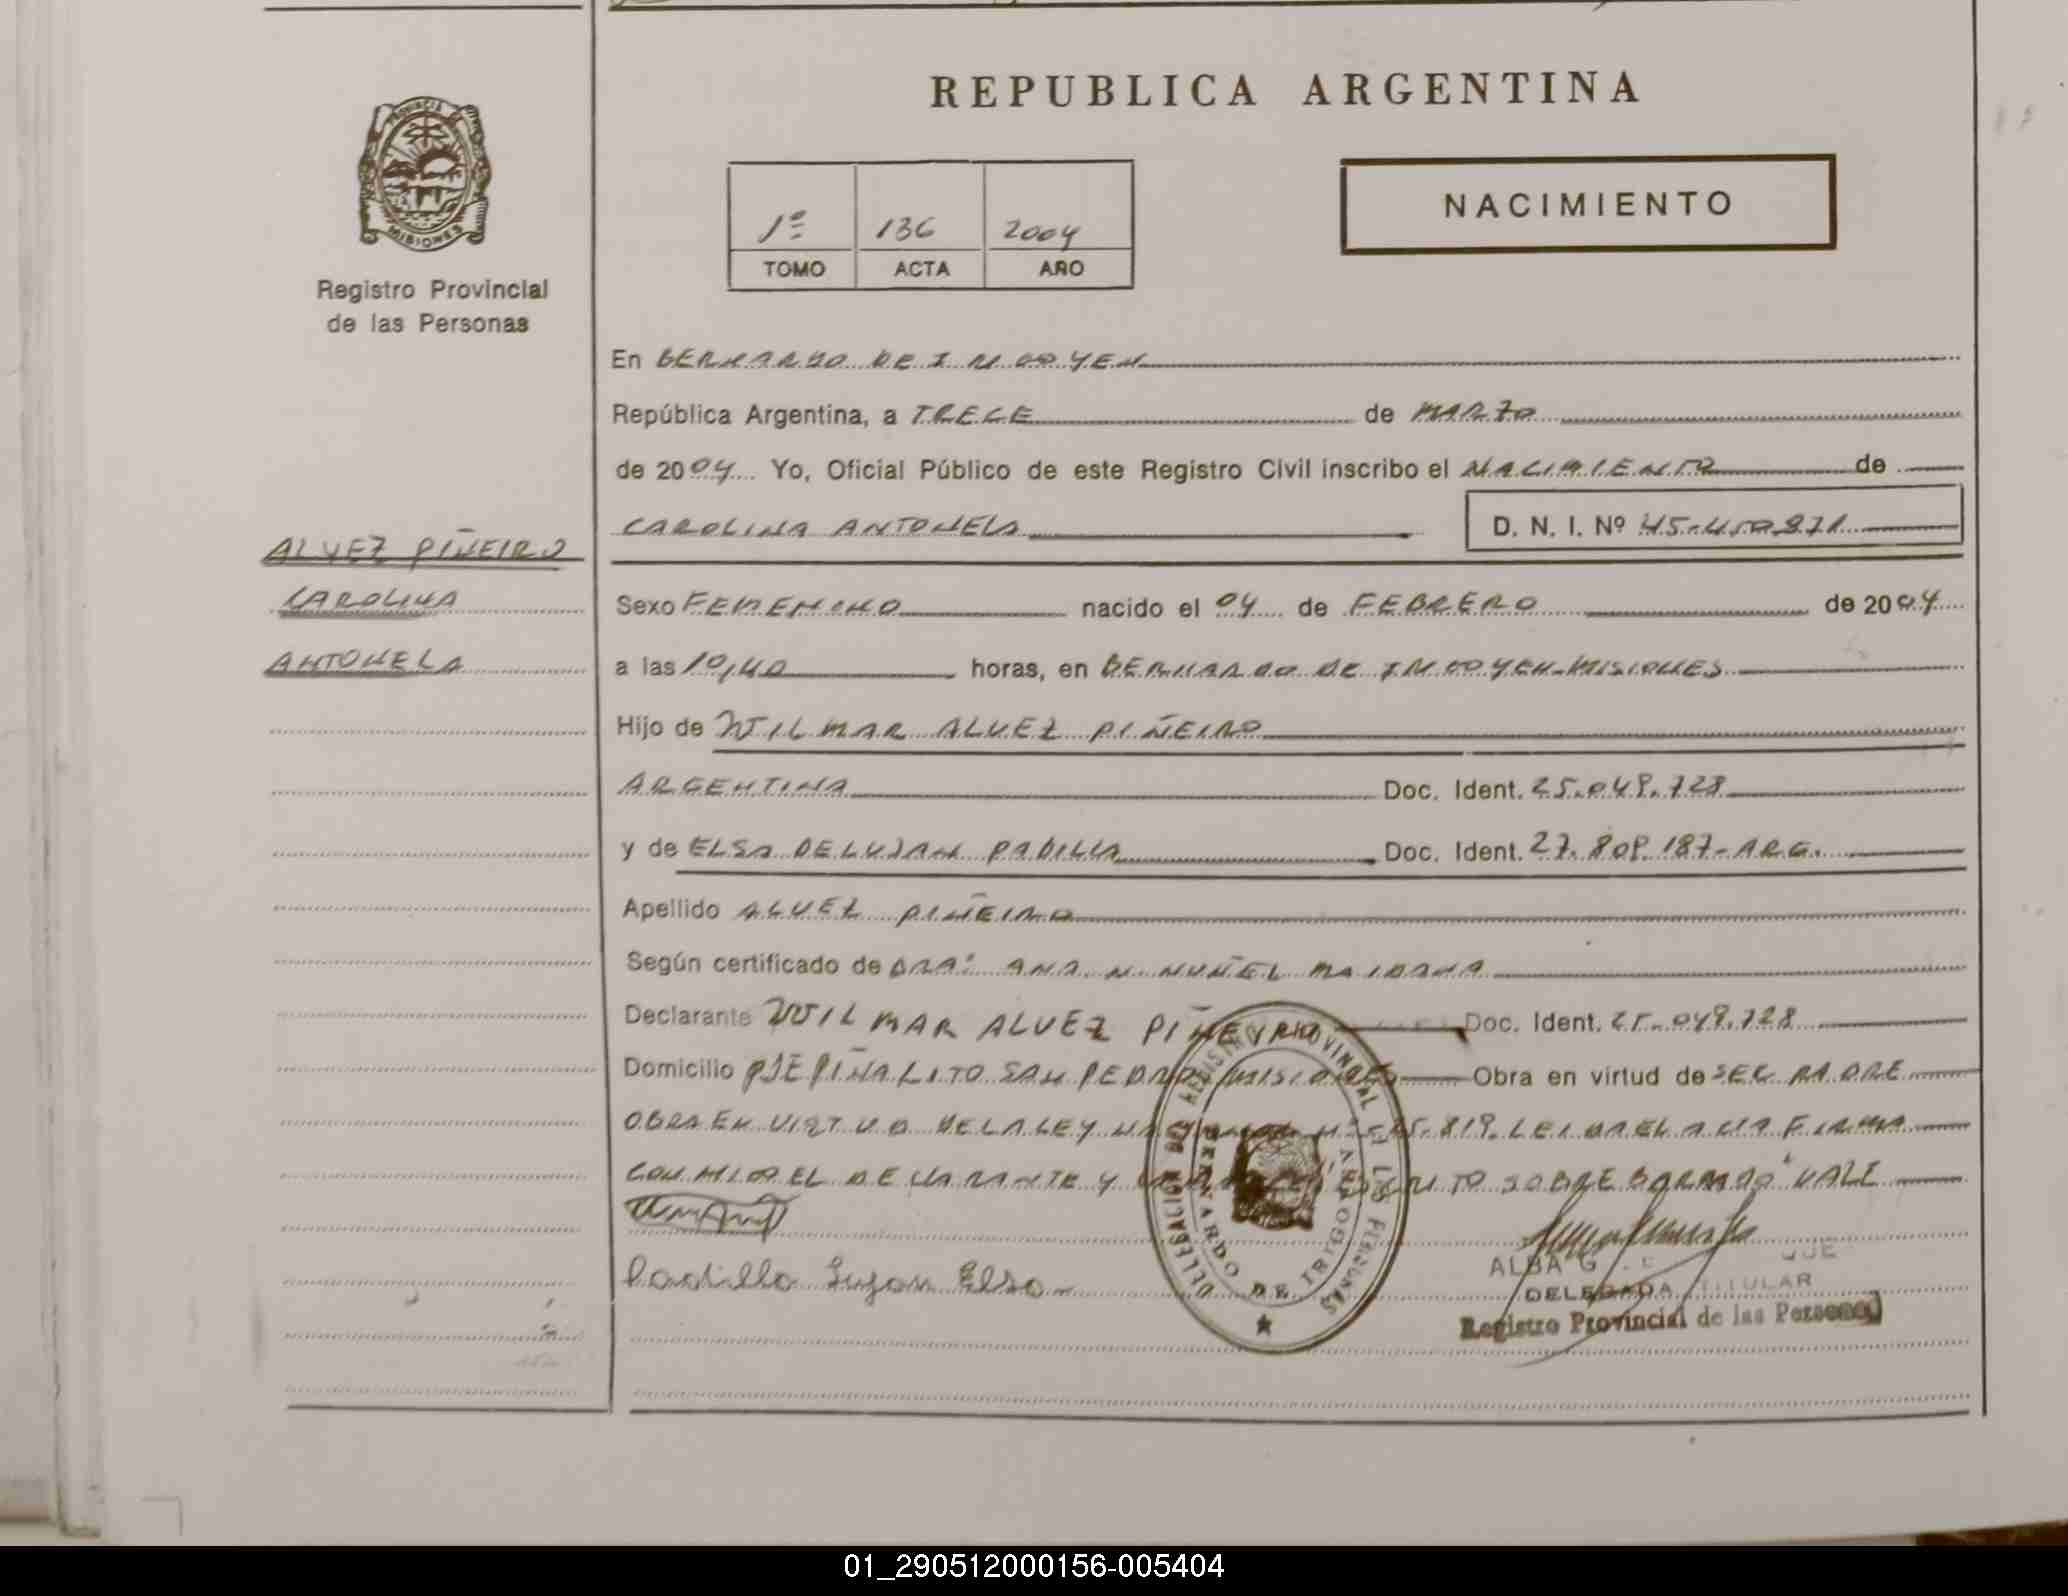 REPUBLICA ARGENTINA
PROVINCIA DE
MISIONES
Registro Provincial
de las Personas
1º 136 2004
TOMO ACTA AÑO
NACIMIENTO
En BERNARDO DE IRIGOYEN
República Argentina, a TRECE de MARZO
de 2004 Yo, Oficial Público de este Registro Civil inscribo el NACIMIENTO de
CAROLINA ANTONELA D. N. I. Nº 45.450.871
ALVEZ PIÑEIRO
CAROLINA
ANTONELA
Sexo FEMENINO nacido el 04 de FEBRERO de 2004
a las 10,40 horas, en BERNARDO DE IRIGOYEN-MISIONES
Hijo de WILMAR ALVEZ PIÑEIRO
ARGENTINA Doc. Ident. 25.049.728
y de ELSA DE LUJAN PADILLA Doc. Ident. 27.809.187-ARG.
Apellido ALVEZ PIÑEIRO
Según certificado de DRA: ANA N. NUÑEZ MAIDANA
Declarante WILMAR ALVEZ PIÑEYRO Doc. Ident. 25.049.728
Domicilio PJE PIÑALITO SAN PEDRO MISIONES Obra en virtud de SER PADRE
OBRA EN VIRTUD DE LA LEY Nº 25.819. LEIDA EL ACTA FIRMA
CONMIGO EL DECLARANTE Y SOBRE BORRADO" VALE
Padilla Lujan Elsa
DELEGACION DEL REGISTRO PROVINCIAL DE LAS PERSONAS
BERNARDO DE IRIGOYEN
ALBA G.
DELEGADA TITULAR
Registro Provincial de las Personas
01_290512000156-005404